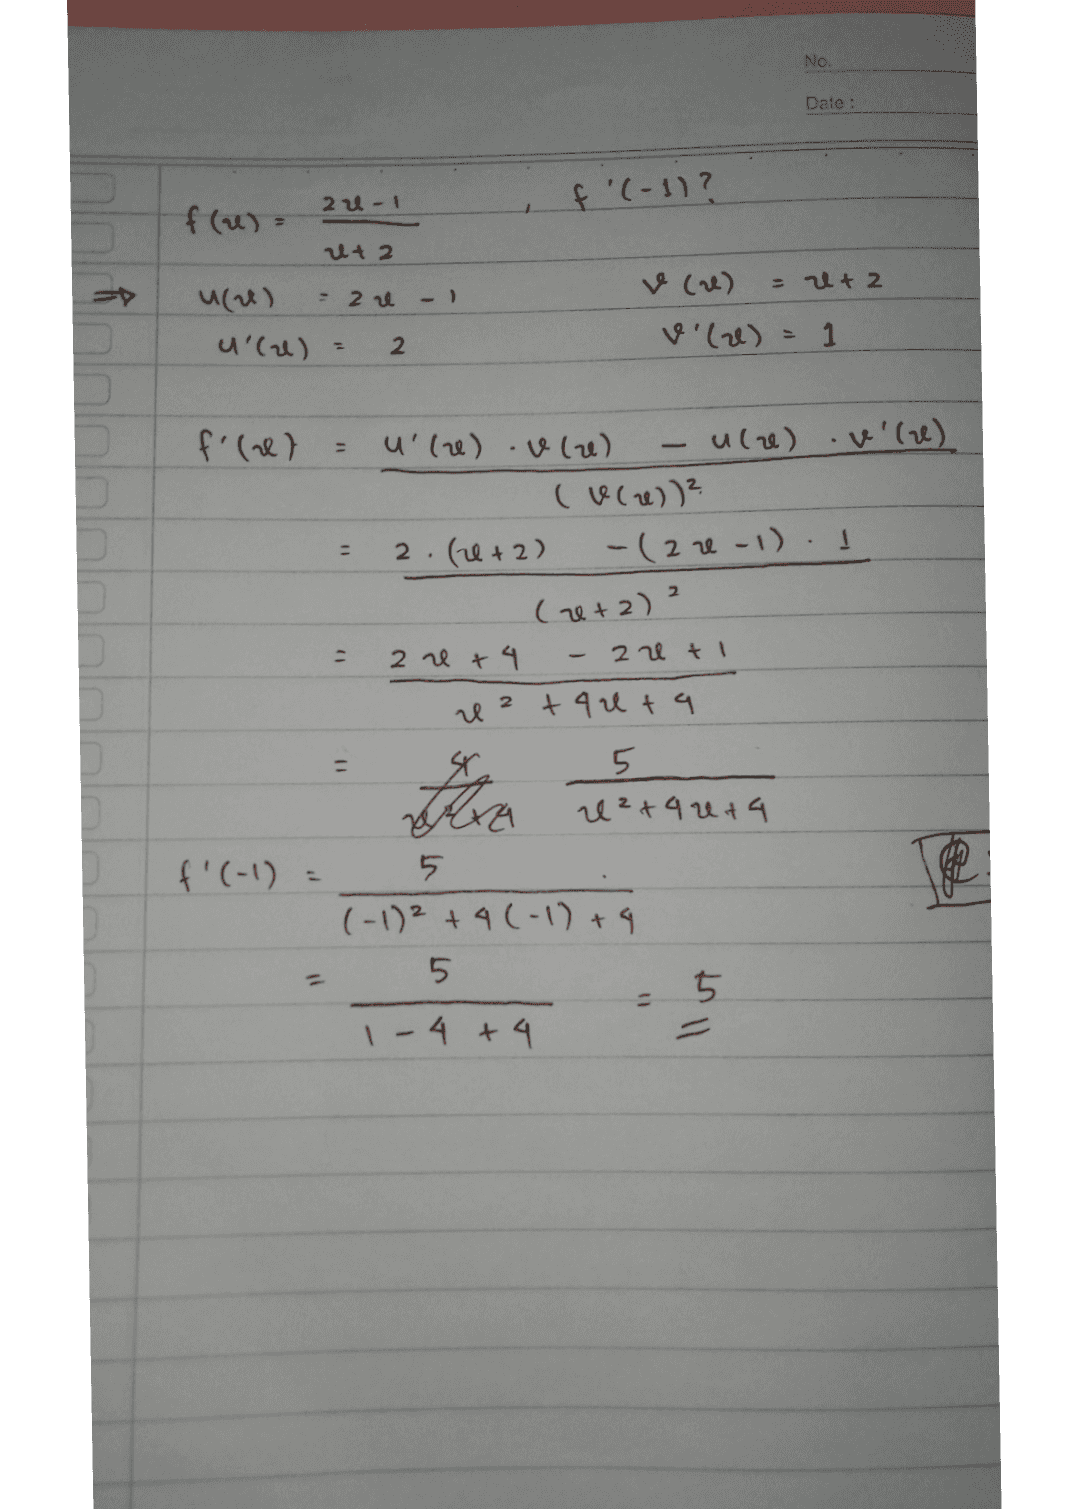 No.
Date :
f(x) = 2x - 1 / x + 2 , f '(-1)?
⇒ u(x) = 2x - 1 v(x) = x + 2
u'(x) = 2 v'(x) = 1
f'(x) = u'(x) . v(x) - u(x) . v'(x)
(v(x))²
= 2 . (x + 2) - (2x - 1) . 1
(x + 2)²
= 2x + 4 - 2x + 1
x² + 4x + 4
= 5
x² + 4x + 4
f'(-1) = 5
(-1)² + 4(-1) + 4
= 5 = 5
1 - 4 + 4